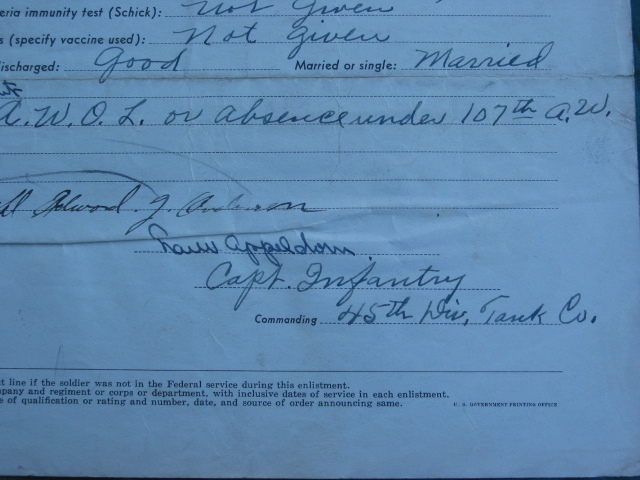 eria immunity test (Schick): Not Given
s (specify vaccine used): Not given
ischarged: Good Married or single: Married
A.W.O.L. or absence under 107th A.W.
Edward J. Anderson
Appeldorn
Capt. Infantry
Commanding 45th Div. Tank Co.
it line if the soldier was not in the Federal service during this enlistment.
mpany and regiment or corps or department, with inclusive dates of service in each enlistment.
e of qualification or rating and number, date, and source of order announcing same.
U. S. GOVERNMENT PRINTING OFFICE